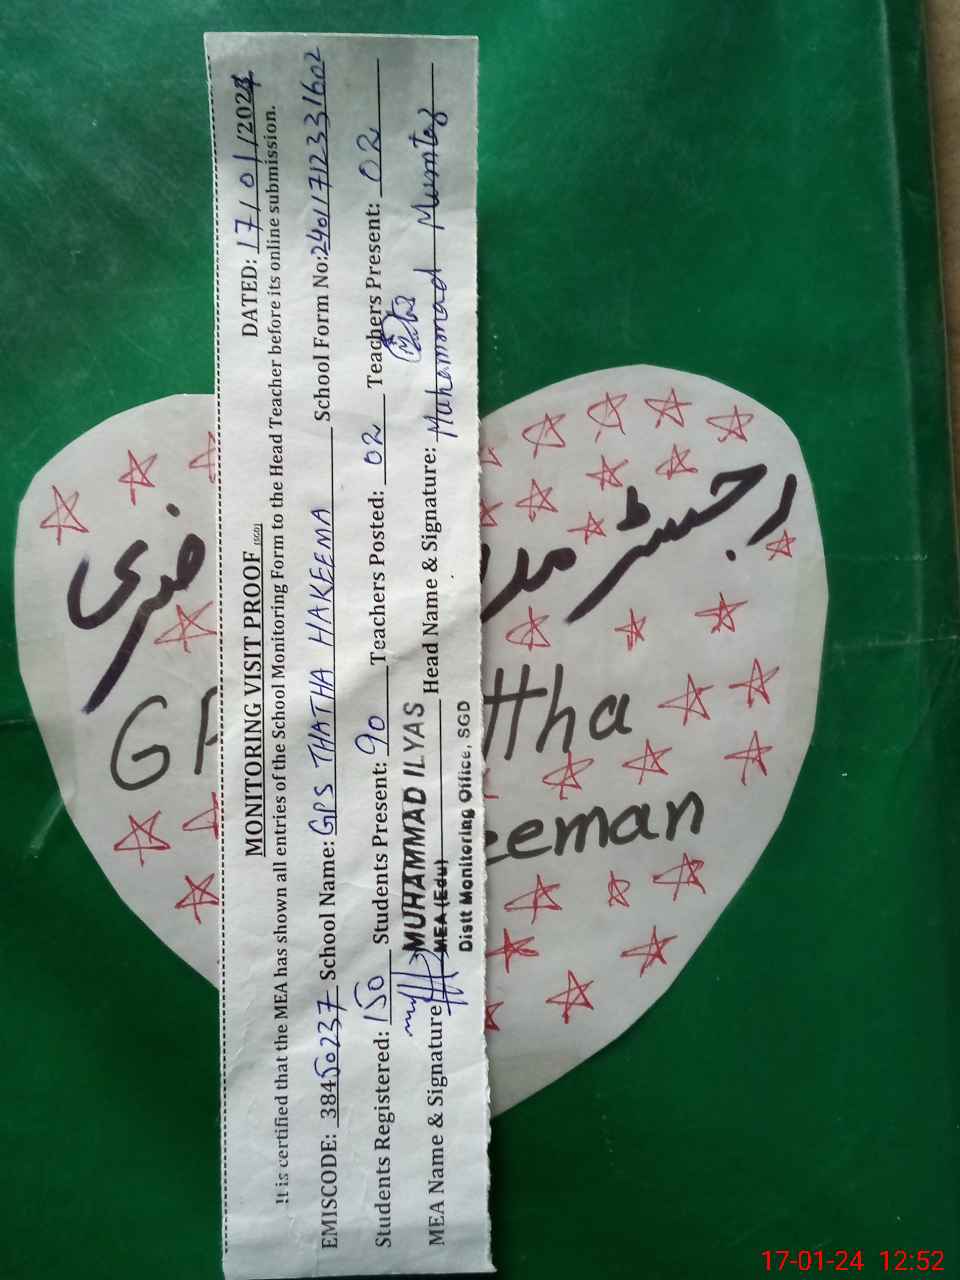 MONITORING VISIT PROOF (SGD)
DATED: 17/01/2024
It is certified that the MEA has shown all entries of the School Monitoring Form to the Head Teacher before its online submission.
EMISCODE: 38450237 School Name: GPS THATHA HAKEEMA School Form No: 24011712331602
Students Registered: 150 Students Present: 90 Teachers Posted: 02 Teachers Present: 02
MEA Name & Signature MUHAMMAD ILYAS Head Name & Signature: Muhammad Mumtaz
MEA (Edu)
Distt Monitoring Office, SGD
رجسٹر
ضری
ttha
eeman
17-01-24 12:52